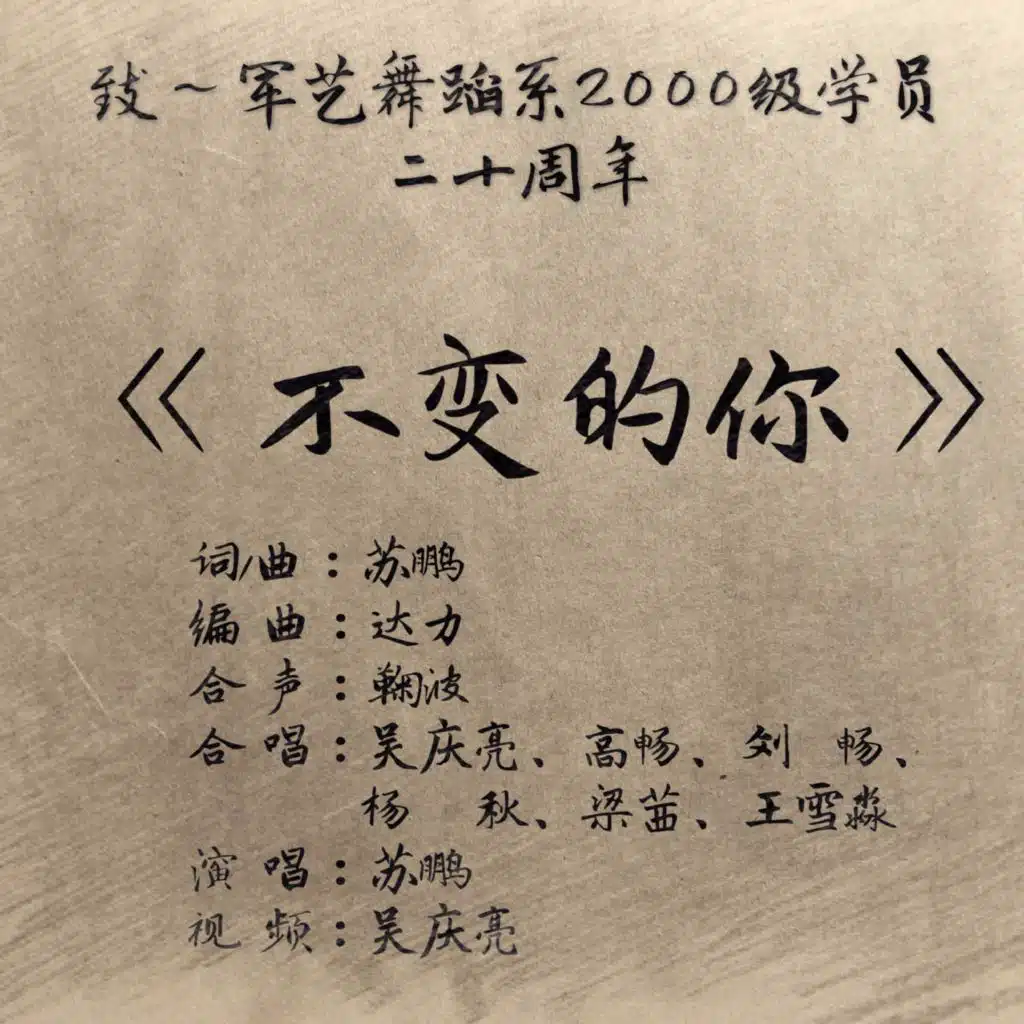 致～军艺舞蹈系2000级学员
二十周年
《不变的你》
词/曲：苏鹏
编 曲：达力
合 声：鞠波
合 唱：吴庆亮、高畅、刘 畅、
杨 秋、梁茜、王雪淼
演 唱：苏鹏
视 频：吴庆亮